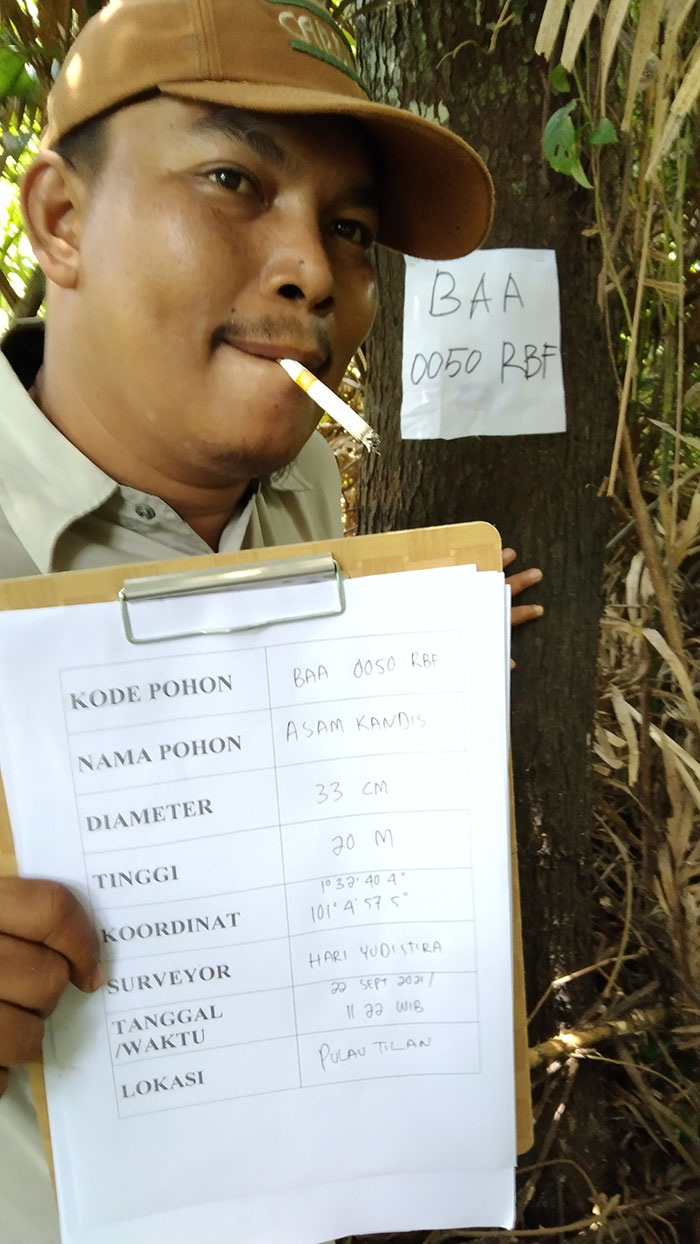 BAA
0050 RBF
KODE POHON BAA 0050 RBF
NAMA POHON ASAM KANDIS
DIAMETER 33 CM
TINGGI 20 M
KOORDINAT 1° 32' 40 4"
101° 4' 57 5"
SURVEYOR HARI YUDISTIRA
TANGGAL
/WAKTU 22 SEPT 2021/
11 22 WIB
LOKASI PULAU TILAN